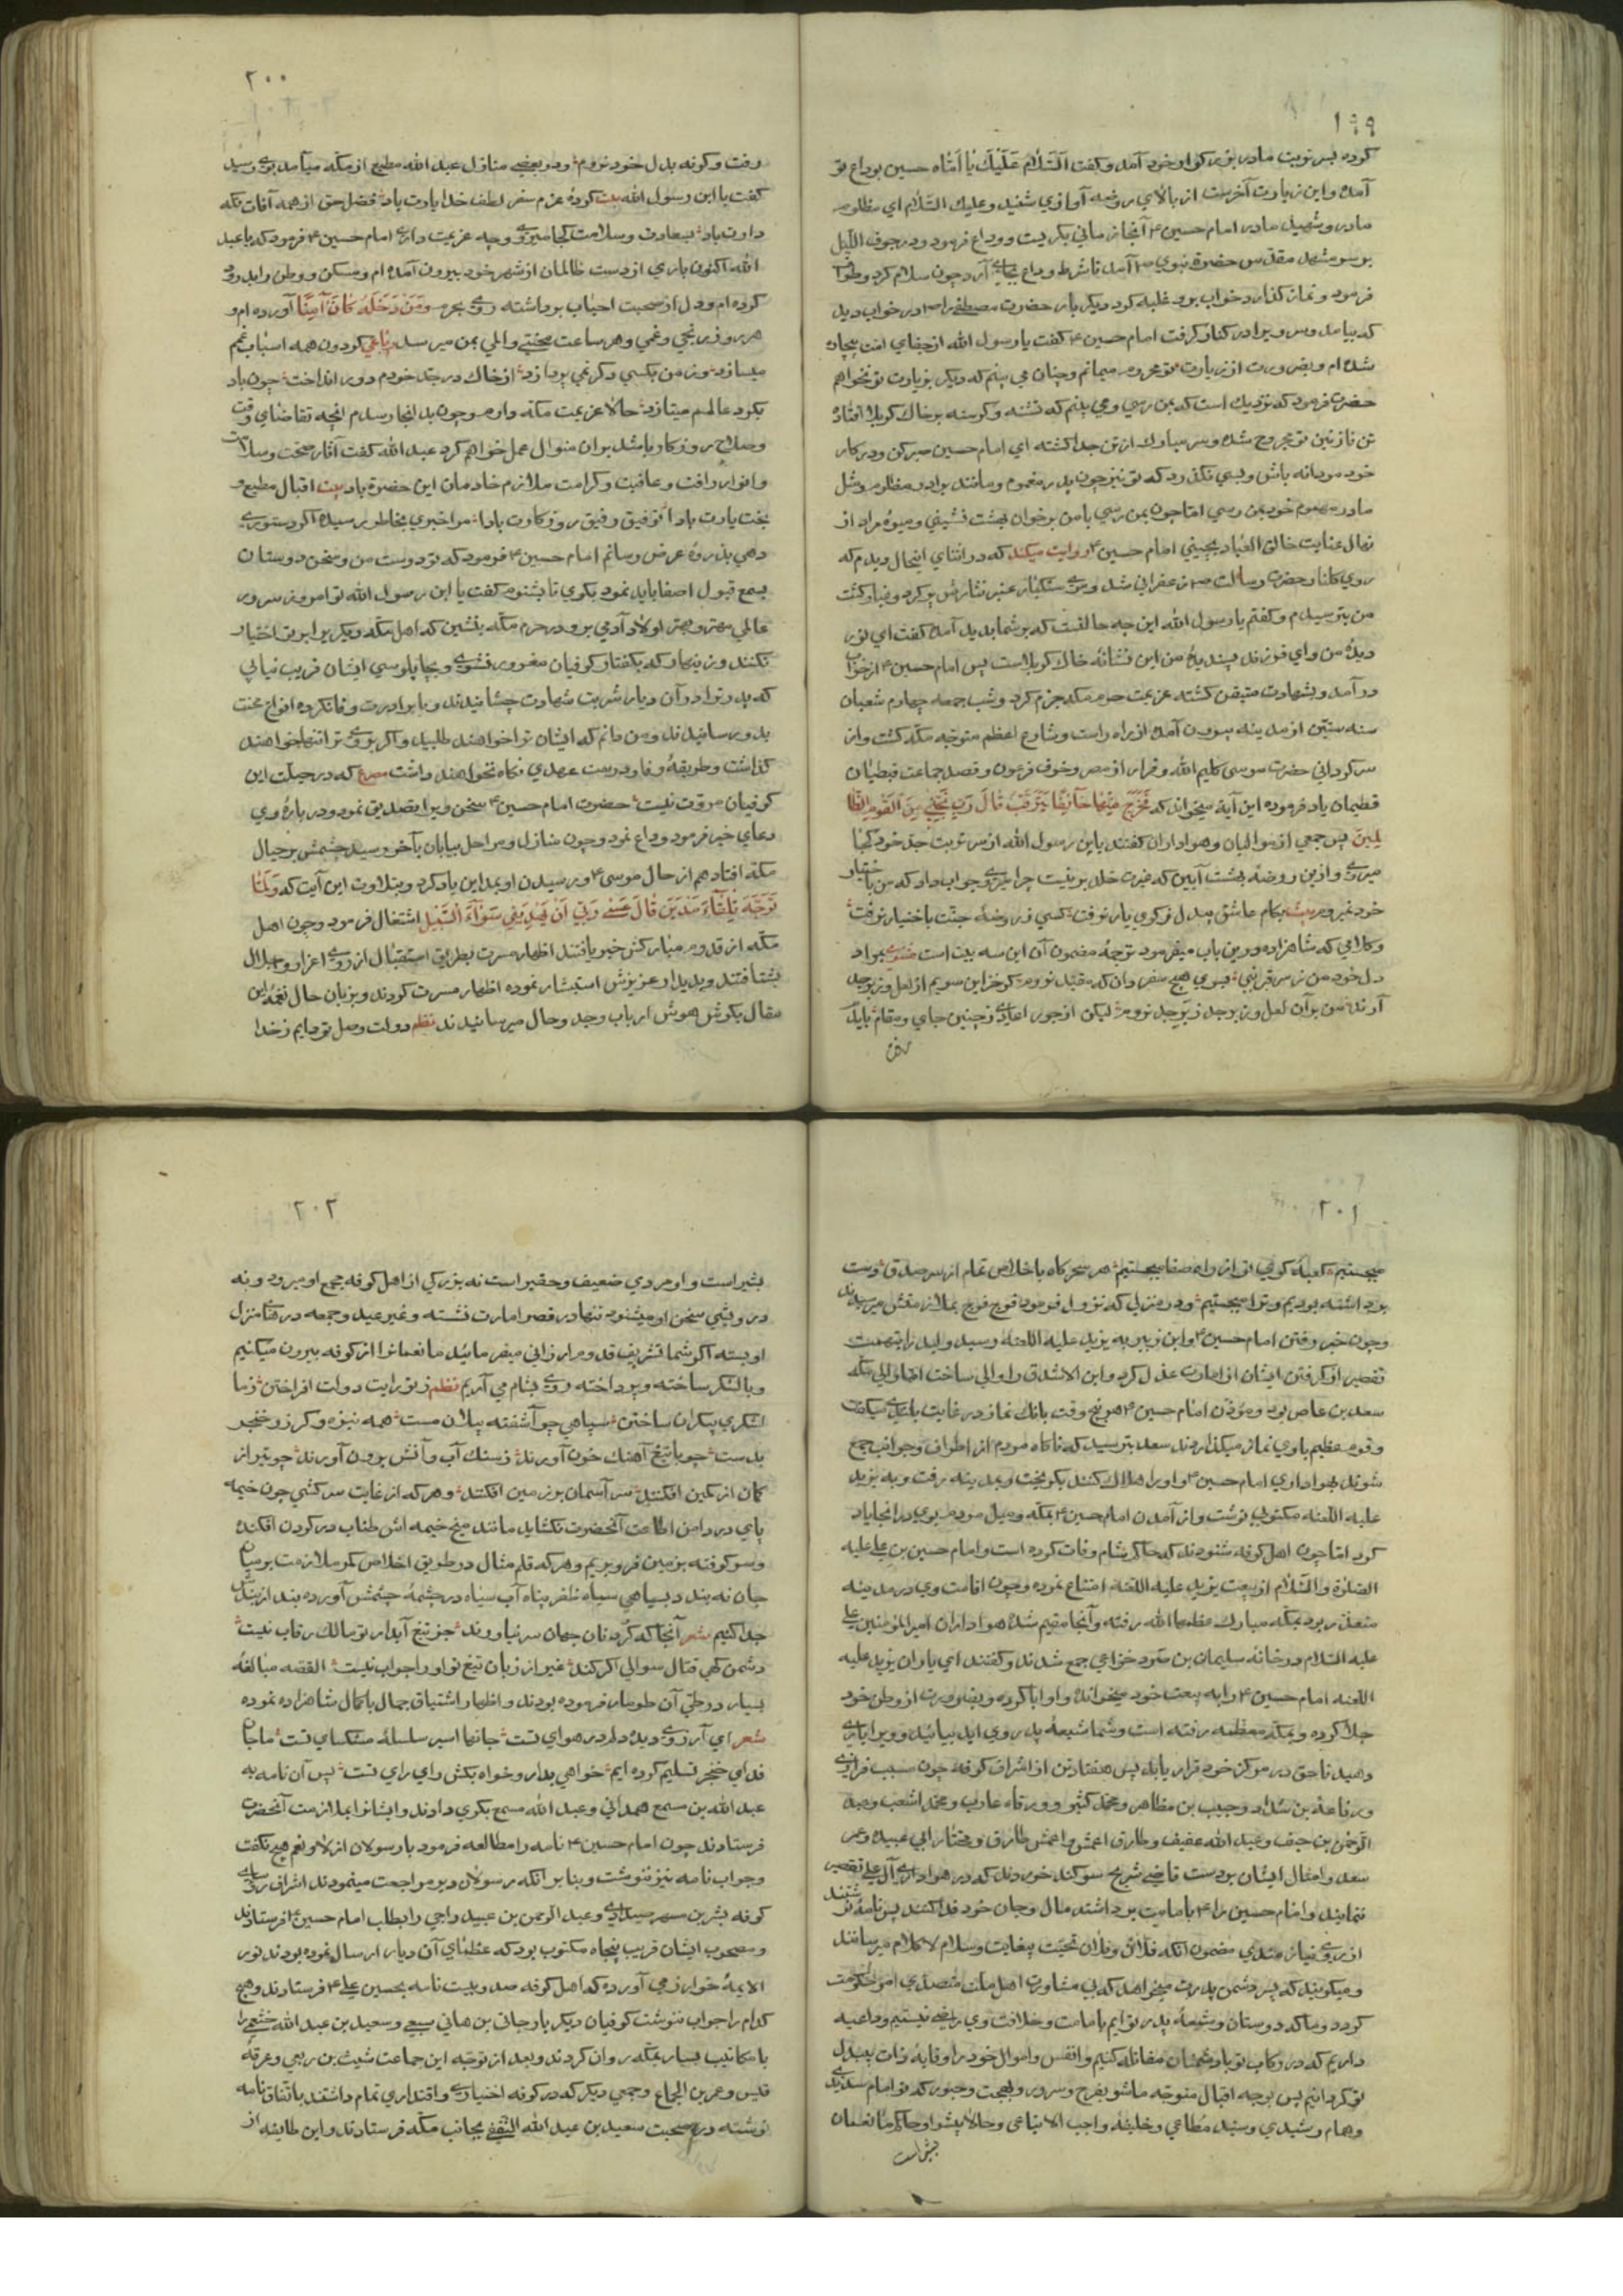 ۱۹۹
کرده بس نوبت مادر بزرکوار خود آمد وکفت اَلسَّلامُ عَلَیْكَ یٰا اُمّاه حسین بوداع تو
آمده واین زیارت آخرست از بالای روضه آوازی شنید وعلیك السَّلام ای مظلوم
مادر وشهید مادر امام حسین ۴ آنجا زمانی بکریست ووداع فرمود ودر جوف اللّیل
بر سر مشهد مقدّس حضرة نبوی ص آمد تا شرط وداع بجای آرد چون سلام کرد وطواف
فرمود ونماز کذارد خواب برو غلبه کرد دیکر باره حضرت مصطفی را ص در خواب دید
که بیامد وسر ویرا در کنار کرفت امام حسین ۴ کفت یا رسول الله از جفای امت بیچاره
شده ام وبضرورت از زیارت تو محروم میمانم وچنان می بینم که دیکر بزیارت تو نخواهم
حضرت فرمود که نزدیك است که بمن رسی ومی بینم که تشنه وکرسنه بر خاك کربلا افتاده
تن نازنین تو مجروح شده وسر مبارك از تن جدا کشته ای امام حسین صبر کن ودر کار
خود مردانه باش وبسی نکذرد که تو نیز چون پدر مغموم ومانند برادر مظلوم ومثل
مادر مهموم خود بمن رسی امّا چون بمن رسی با من بر خوان بهشت نشینی ومیوۀ مراد از
نهال عنایت خالق العباد بچینی امام حسین ۴ روایت میکند که در اثنای اینحال دیدم که
روی کلنار حضرت رسالت ص زعفرانی شد وموی مشکبار عنبر نثارش پر کرد وغبار کشت
من بترسیدم وکفتم یا رسول الله این چه حالتست که بر شما بدید آمده کفت ای نور
دیدۀ من وای فرزند پسندیدۀ من این نشانۀ خاك کربلاست پس امام حسین ۴ از خواب
در آمد وبشهادت متیقن کشته عزیمت حرم مکه جزم کرد وشب جمعه چهارم شعبان
سنه ستین از مدینه بیرون آمده از راه راست وشارع اعظم متوجه مکّه کشت واز
سرکردانی حضرت موسی کلیم الله وفرار از مصر وخوف فرعون وقصد جماعت قبطیان
قطیمان یاد فرموده این آیه میخواند که فَخَرَجَ مِنْهَا خَآئِفًا یَتَرَقَّبُ قَالَ رَبِّ نَجِّنِی مِنَ الْقَوْمِ الظَّا
لِمِینَ پس جمعی از موالیان وهواداران کفتند یابن رسول الله از سر تربت جد خود کجا
میروی واز این روضۀ بهشت آیین که غیرت خلد برینست چرا میروی جواب داد که من باختیار
خود نمیروم بیت بکام عاشق بیدل ز کوی یار نرفت کسی ز روضۀ جنّت باختیار نرفت
وکلامی که شاهزاده درین باب میفرمود ترجمۀ مضمون آن این سه بیت است مثنوی بمراد
دل خود من ز سر قبر نبی بسوی هیچ سفر دان که مقیّد نروم کر خزاین سویم از لعل وزبرجد
آرند من بران لعل وزبرجد ز برجد نروم لیکن از جور اعادی ز چنین جای ومقام باید
رفتن
۲۰۰
رفت وکرنه بدل خود نروم ودر بعضی منازل عبد الله مطیع از مکّه میآمد بوی رسید
کفت یا ابن رسول الله بیت کردۀ عزم سفر لطف خدا یارت باد فضل حق از همه آفات نکه
دارت باد بسعادت وسلامت کجا میروی وچه عزیمت داری امام حسین ۴ فرمود که یا عبد
الله اکنون باری از دست ظالمان از شهر خود بیرون آمده ام ومسکن ووطن را بدرود
کرده ام ودل از صحبت احباب برداشته روی بحرم وَمَنْ دَخَلَهُ کَانَ آمِنًا آورده ام و
هر روز رنجی وغمی وهر ساعت محنتی والمی بمن میرسد رباعی کردون همه اسباب غم
میسازد وز من بکسی دکر نمی پردازد از خاك در جد خودم دور انداخت چون باد
بکرد عالمم میتازد حالا عزیمت مکّه دارم وچون بدانجا رسدم انچه تقاضای وقت
وصلاح روزکار باشد بران منوال عمل خواهم کرد عبد الله کفت آثار صحّت وسلامت
وانوار رافت وعافیت وکرامت ملازم خادمان این حضرة باد بیت اقبال مطیع و
بخت یارت بادا توفیق رفیق روزکارت بادا مرا خبری بخاطر رسیده اکر دستوری
دهی بذروۀ عرض رسانم امام حسین ۴ فرمود که تو دوست من وسخن دوستان
بسمع قبول اصغا باید نمود بکوی تا بشنوم کفت یا ابن رسول الله تو امروز سرور
عالمی مهتر وبهتر اولاد آدمی برو در حرم مکّه بنشین که اهل مکّه دیکریرا بر تو اختیار
نکنند وزینهار که بکفتار کوفیان مغرور نشوی وبچاپلوسی ایشان فریب نیابی
که پدر ترا در آن دیار شربت شهادت چشانیدند وبا برادرت وفا نکرده انواع محنت
بدو رسانیدند ومن دانم که ایشان ترا خواهند طلبید واکر بروی ترا تنها خواهند
کذاشت وطریقۀ وفا ودرست عهدی نکاه نخواهند داشت مصرع که در جبلّت این
کوفیان مروّت نیست حضرت امام حسین ۴ سخن ویرا تصدیق نمود ودر بارۀ وی
دعای خیر فرمود وداع نمود وچون منازل ومراحل بیابان بآخر رسید چشمش بر جبال
مکّه افتاد هم از حال موسی ۴ ورسیدن او بمداین یاد کرد وبتلاوت این آیت که وَلَمَّا
تَوَجَّهَ تِلْقَآءَ مَدْیَنَ قَالَ عَسٰی رَبِّی اَنْ یَهْدِیَنِی سَوَآءَ السَّبِیلِ اشتغال فرمود وچون اهل
مکّه از قدوم مبارکش خبر یافتند اظهار مسرت بطریق استقبال از روی اعزاز واجلال
بشتافتند وبدیدار عزیزش استبشار نموده اظهار مسرت کردند وبزبان حال نغمۀ این
مقال بکوش هوش ارباب وجد وحال میرسانیدند نظم دولت وصل تو دایم ز خدا
۲۰۱
میجستیم کعبۀ کوی تو از راه صفا میجستیم هر سحرکاه باخلاص تمام از سر صدق دست
برداشته بودیم وترا میجستیم ودر منزلی که نزول فرمود فوج فوج بملازمتش میرسیدند
وچون خبر رفتن امام حسین ۴ وابن زبیر به یزید علیه اللعنه رسید ولید را بتهمت
تقصیر از کرفتن ایشان از امارت عزل کرد وابن الاشدق را والی ساخت امّا والی مکّه
سعد بن عاص بود ومؤذن امام حسین ۴ هر پنج وقت بانك نماز در غایت بلندی میکفت
وقوم عظیم با وی نماز میکذاردند سعد بترسید که ناکاه مردم از اطراف وجوانب جمع
شوند بهواداری امام حسین ۴ واو را هلاك کنند بکریخت وبمدینه رفت وبه یزید
علیه اللعنه مکتوبی نوشت واز آمدن امام حسین ۴ بمکّه ومیل مردم بوی در انجا یاد
کرد امّا چون اهل کوفه شنودند که حاکم شام وفات کرده است وامام حسین بن علی علیه
الصّلوة والسَّلام از بیعت یزید علیه اللعنه امتناع نموده وچون اقامت وی در مدینه
متعذّر بود بمکّه مبارك عظمها الله رفته وآنجا مقیم شده هواداران امیر المؤمنین علی
علیه السّلام در خانۀ سلیمان بن صرد خزاعی جمع شدند وکفتند ای یاران یزید علیه
اللعنه امام حسین ۴ را به بیعت خود میخوانده واو ابا کرده وبضرورت از وطن خود
جلا کرده وبمکّه معظمه رفته است وشما شیعۀ پدر وی اید بیائید وویرا یاری
دهید تا حق در مرکز خود قرار یابد پس هفتاد تن از اشراف کوفه چون مسیب فزاری
ورفاعه بن شدّاد وحبیب بن مظاهر ومحمد کثیر وورقاء عازب ومحمد اشعب وعبد
الرّحمٰن بن حنف وعبد الله عفیف وطارق اعمش واعمش طارق ومختار ابی عبیده وعمر
سعد وامثال ایشان بر دست قاضی شریح سوکند خوردند که در هواداری آل علی تقصیر
ننمایند وامام حسین را ۴ بامامت برداشته مال وجان خود فدا کنند پس نامۀ نوشتند
از روی نیازمندی مضمون انکه فلان وفلان تحیّت بیغایت وسلام لا کلام میرسانند
ومیکویند که پسر دشمن پدرت میخواهد که بی مشاورت اهل ملت متصدّی امور حکومت
کردد وما که دوستان وشیعۀ پدر توایم بامامت وخلافت وی راضی نیستیم وداعیه
داریم که در رکاب تو با دشمنان مقاتله کنیم وانفس واموال خود را وقایۀ ذات بیبدل
تو کردانیم پس بوجه اقبال متوجّه ما شو بفرح وسرور وبهجت وحبور که تو امام سدیدی
وهمام رشیدی وسیّد مُطاعی وخلیفۀ واجب الاتباعی وحالا پیشوا وحاکم ما نعمان
بشیر است
۲۰۲
بشیر است واو مردی ضعیف وحقیر است نه بزرکی از اهل کوفه بجمع او میرود ونه
درویشی سخن او میشنود تنها در قصر امارت نشسته وغیر عید وجمعه در سرای منزل
او بسته اکر شما تشریف قدوم ارزانی میفرمائید ما نعمانرا از کوفه بیرون میکنیم
وبا لشکر ساخته وپرداخته روی بشام می آریم نظم ز تو رایت دولت افراختن ز ما
لشکری بیکران ساختن سپاهی چو آشفته پیلان مست همه نیزه وکرز وخنجر
بدست چو با تیغ آهنك خون آورند ز سنك آب وآتش برون آورند چو تیر از
کمان از کمین افکنند سر آسمان بر زمین افکنند وهر که از غایت سرکشی چون خیمه
پای در دامن اطاعت آنحضرت نکشاید مانند میخ خیمه اش طناب در کردن افکنده
وسر کوفته بزمین فرو بریم وهر که قلم مثال در طریق اخلاص کمر ملازمت بر میان
جان نه بندد بسیاهی سپاه ظفر پناه آب سیاه در چشمۀ چشمش آورده بند از بندش
جدا کنیم شعر آنجا که کردنان جهان سر نیاورند جز تیغ آبدار تو مالك رقاب نیست
دشمن کهی قتال سوالی اکر کند غیر از زبان تیغ تو اورا جواب نیست القصه مبالغۀ
بسیار در طیّ آن طومار فرموده بودند واظهار اشتیاق جمال باکمال شاهزاده نموده
شعر ای آرزوی دیدۀ دلم در هوای تست جانها اسیر سلسلۀ مشکسای تست ما جان
فدای خنجر تسلیم کرده ایم خواهی بدار وخواه بکش رای رای تست پس آن نامه به
عبد الله بن مسمع همدانی وعبد الله مسمع بکری دادند وایشانرا بملازمت آنحضرت
فرستادند چون امام حسین ۴ نامه را مطالعه فرمود با رسولان از لا ونعم هیچ نکفت
وجواب نامه نیز ننوشت وبنابر آنکه رسولان دیر مراجعت مینمودند اشراف رؤسای
کوفه بشر بن مسهر صیداوی وعبد الرحمن بن عبید راجی را بطلب امام حسین ۴ فرستادند
ومصحوب ایشان قریب پنجاه مکتوب بود که عظمای آن دیار ارسال نموده بودند نور
الایمۀ خوارزمی آورده که اهل کوفه صد وبیست نامه بحسین علی ۴ فرستادند وهیچ
کدام را جواب ننوشت کوفیان دیکر بار جانی بن هانی سبیعی وسعید بن عبد الله خثعمی را
با مکاتیب بسیار بمکّه روان کردند وبعد از توجه این جماعت شیث بن ربعی وعرقه
قلیس وعمر بن الجماع وجمعی دیکر که در کوفه اختیاری واقتداری تمام داشتند باتّفاق نامه
نوشته در صحبت سعید بن عبد الله الثقفی بجانب مکّه فرستادند واین طایفه از